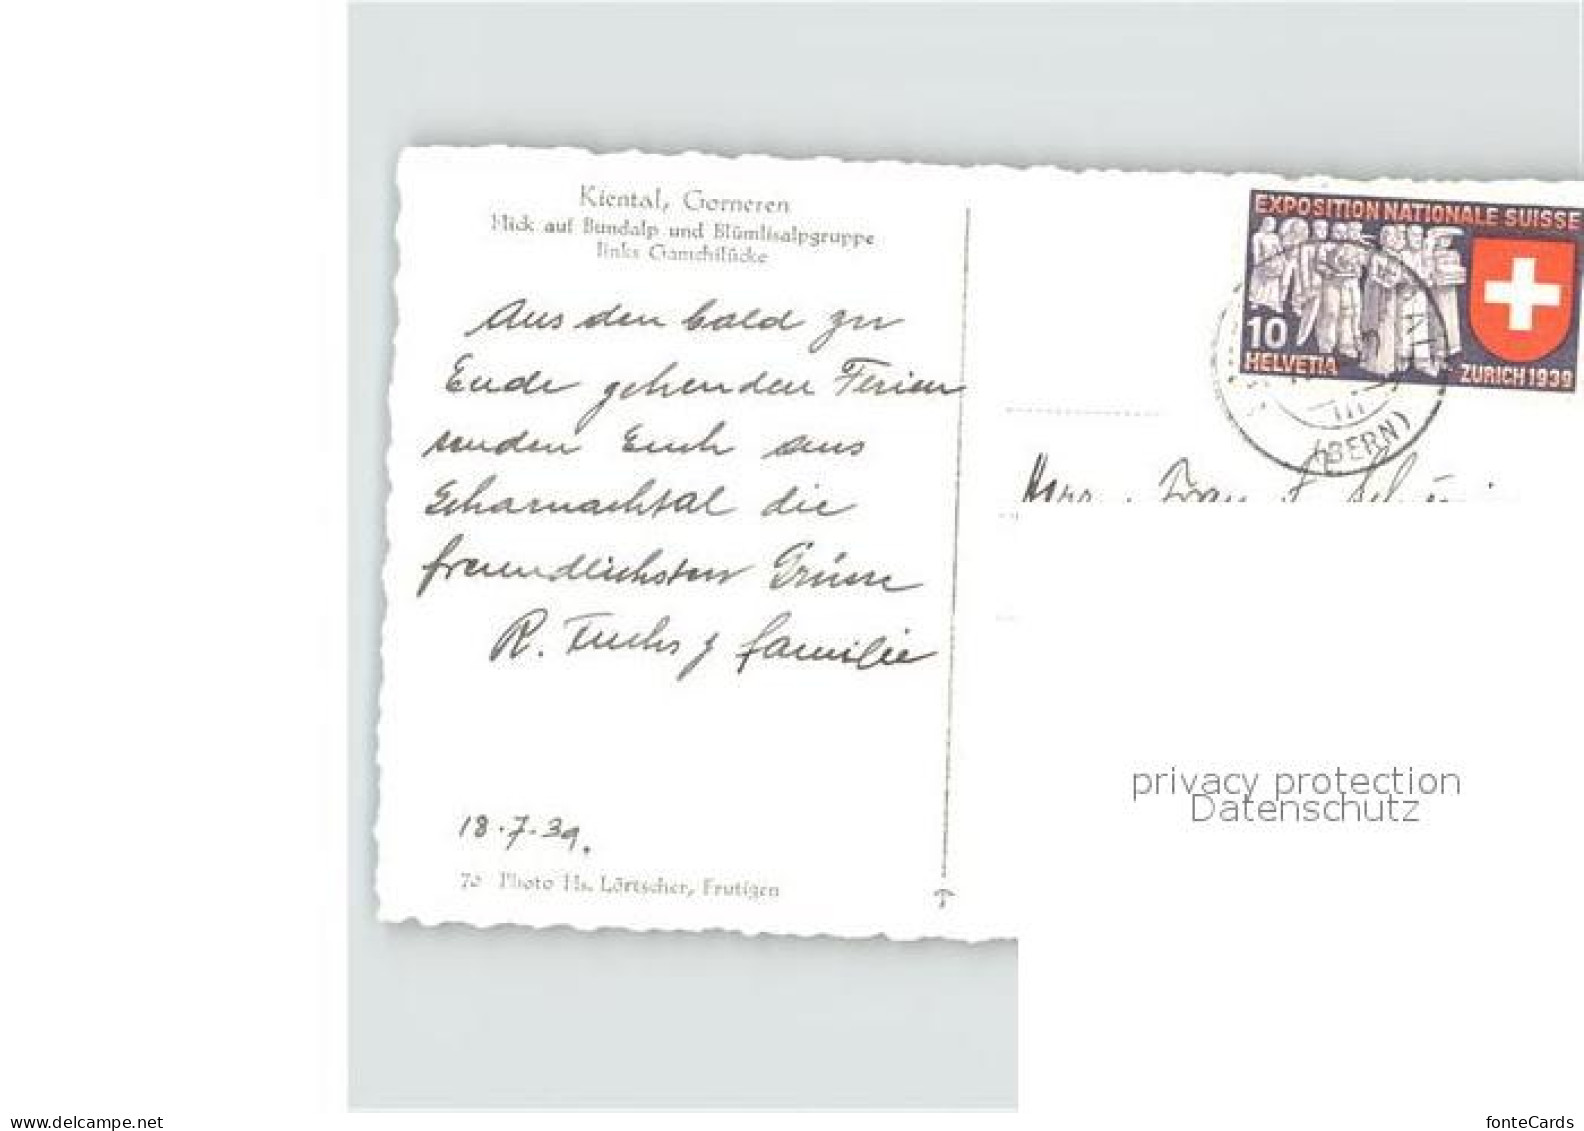 Kiental, Gorneren
Blick auf Bundalp und Blümlisalpgruppe
links Gamchilücke
Aus den bald zu
Ende gehenden Ferien
senden Euch aus
Scharnachtal die
freundlichsten Grüsse
R. Fuchs & familie
18.7.39.
70 Photo Hs. Lörtscher, Frutigen
EXPOSITION NATIONALE SUISSE
10
HELVETIA
ZURICH 1939
(BERN)
privacy protection
Datenschutz
www.delcampe.net
fonteCards